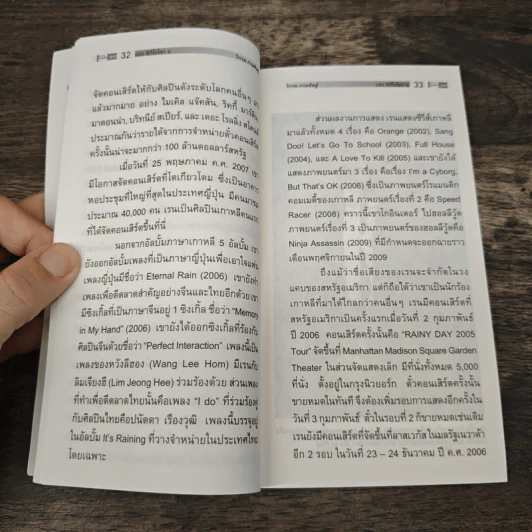 32
จัดคอนเสิร์ตให้กับศิลปินดังระดับโลกคนอื่นๆ มา
แล้วมากมาย อย่าง ไมเคิล แจ๊คสัน, ริคกี้ มาร์ติน,
มาดอนน่า, บริทนีย์ สเปียร์, และ เดอะ โรลลิ่ง สโตนส์
ประมาณกันว่ารายได้จากการจำหน่ายตั๋วคอนเสิร์ต
ครั้งนั้นน่าจะมากกว่า 100 ล้านดอลลาร์สหรัฐ
เมื่อวันที่ 25 พฤษภาคม ค.ศ. 2007 เรน
มีโอกาสจัดคอนเสิร์ตที่โตเกียวโดม ซึ่งเป็นอาคาร
หอประชุมที่ใหญ่ที่สุดในประเทศญี่ปุ่น มีคนมาชม
ประมาณ 40,000 คน เรนเป็นศิลปินเกาหลีคนแรก
ที่ได้จัดคอนเสิร์ตขึ้นที่นี่
นอกจากอัลบั้มภาษาเกาหลี 5 อัลบั้ม เรน
ยังออกอัลบั้มเพลงที่เป็นภาษาญี่ปุ่นเพื่อเอาใจแฟน
เพลงญี่ปุ่นมีชื่อว่า Eternal Rain (2006) เขายังทำ
เพลงเพื่อตีตลาดสำคัญอย่างจีนและไทยอีกด้วย เขา
มีซิงเกิ้ลที่เป็นภาษาจีนอยู่ 1 ซิงเกิ้ล ชื่อว่า "Memory
in My Hand" (2006) เขายังได้ออกซิงเกิ้ลที่ร้องกับ
ศิลปินจีนด้วยชื่อว่า "Perfect Interaction" เพลงนี้เป็น
เพลงของหวังลีฮอง (Wang Lee Hom) มีเรนกับ
ลิมเจียงฮี (Lim Jeong Hee) ร่วมร้องด้วย ส่วนเพลง
ที่ทำเพื่อตีตลาดไทยนั้นคือเพลง "I do" ที่ร่วมร้องคู่
กับศิลปินไทยคือปนัดดา เรืองวุฒิ เพลงนี้บรรจุอยู่
ในอัลบั้ม It's Raining ที่วางจำหน่ายในประเทศไทย
โดยเฉพาะ
33
ส่วนผลงานการแสดง เรนแสดงซีรีส์เกาหลี
มาแล้วทั้งหมด 4 เรื่อง คือ Orange (2002), Sang
Doo! Let's Go To School (2003), Full House
(2004), และ A Love To Kill (2005) และเขายังได้
แสดงภาพยนตร์มา 3 เรื่อง คือเรื่อง I'm a Cyborg,
But That's OK (2006) ซึ่งเป็นภาพยนตร์โรแมนติก
คอมเมดี้ของเกาหลี ภาพยนตร์เรื่องที่ 2 คือ Speed
Racer (2008) คราวนี้เขาโกอินเตอร์ ไปฮอลลีวู้ด
ภาพยนตร์เรื่องที่ 3 เป็นภาพยนตร์ของฮอลลีวู้ดคือ
Ninja Assassin (2009) ที่มีกำหนดจะออกฉายราว
เดือนพฤศจิกายนในปี 2009
ถึงแม้ว่าชื่อเสียงของเรนจะจำกัดในวง
แคบของสหรัฐอเมริกา แต่ก็ถือได้ว่าเขาเป็นนักร้อง
เกาหลีที่มาได้ไกลกว่าคนอื่นๆ เรนมีคอนเสิร์ตที่
สหรัฐอเมริกาเป็นครั้งแรกเมื่อวันที่ 2 กุมภาพันธ์
ปี 2006 คอนเสิร์ตครั้งนั้นคือ "RAINY DAY 2005
Tour" จัดขึ้นที่ Manhattan Madison Square Garden
Theater ในส่วนจัดแสดงเล็ก มีที่นั่งทั้งหมด 5,000
ที่นั่ง ตั้งอยู่ในกรุงนิวยอร์ก ตั๋วคอนเสิร์ตครั้งนั้น
ขายหมดในทันที จึงต้องเพิ่มรอบการแสดงอีกครั้งใน
วันที่ 3 กุมภาพันธ์ ตั๋วในรอบที่ 2 ก็ขายหมดเช่นเดิม
เรนยังมีคอนเสิร์ตที่จัดขึ้นที่ลาสเวกัส ในมลรัฐเนวาด้า
อีก 2 รอบ ในวันที่ 23 – 24 ธันวาคม ปี ค.ศ. 2006